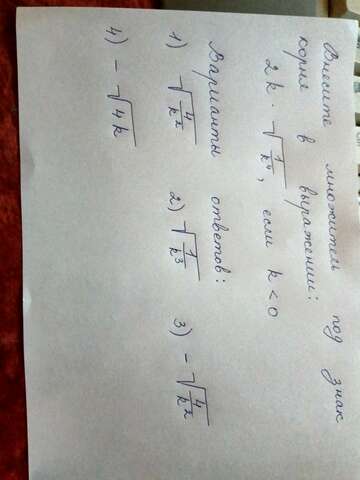 Внесите множитель под знак
корня в выражении:
2k · √(1/k⁴), если k < 0
Варианты ответов:
1) √(4/k²) 2) √(1/k³) 3) - √(4/k²)
4) - √4k